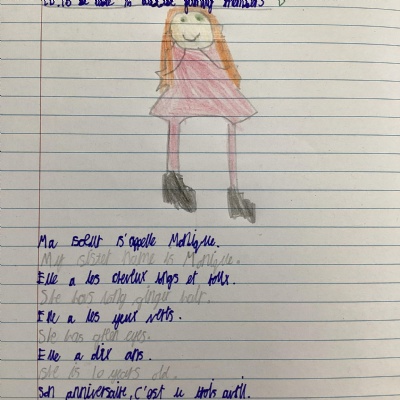 LO. to be able to describe family members
Ma soeur s'appelle Monique.
My sister name is Monique.
Elle a les cheveux longs et roux.
She has long ginger hair.
Elle a les yeux verts.
She has green eyes.
Elle a dix ans.
She is 10 years old.
Son anniversaire, c'est le trois avril.